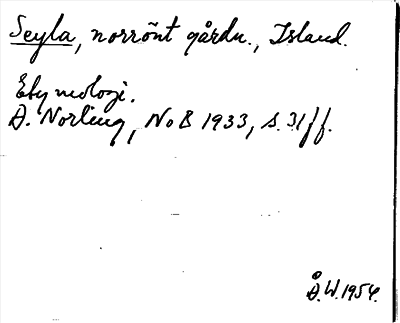 Seyla, norrönt gårdn., Island.
Etymologi.
A. Norling, NoB 1933, s. 31 ff.
Å.W. 1954.